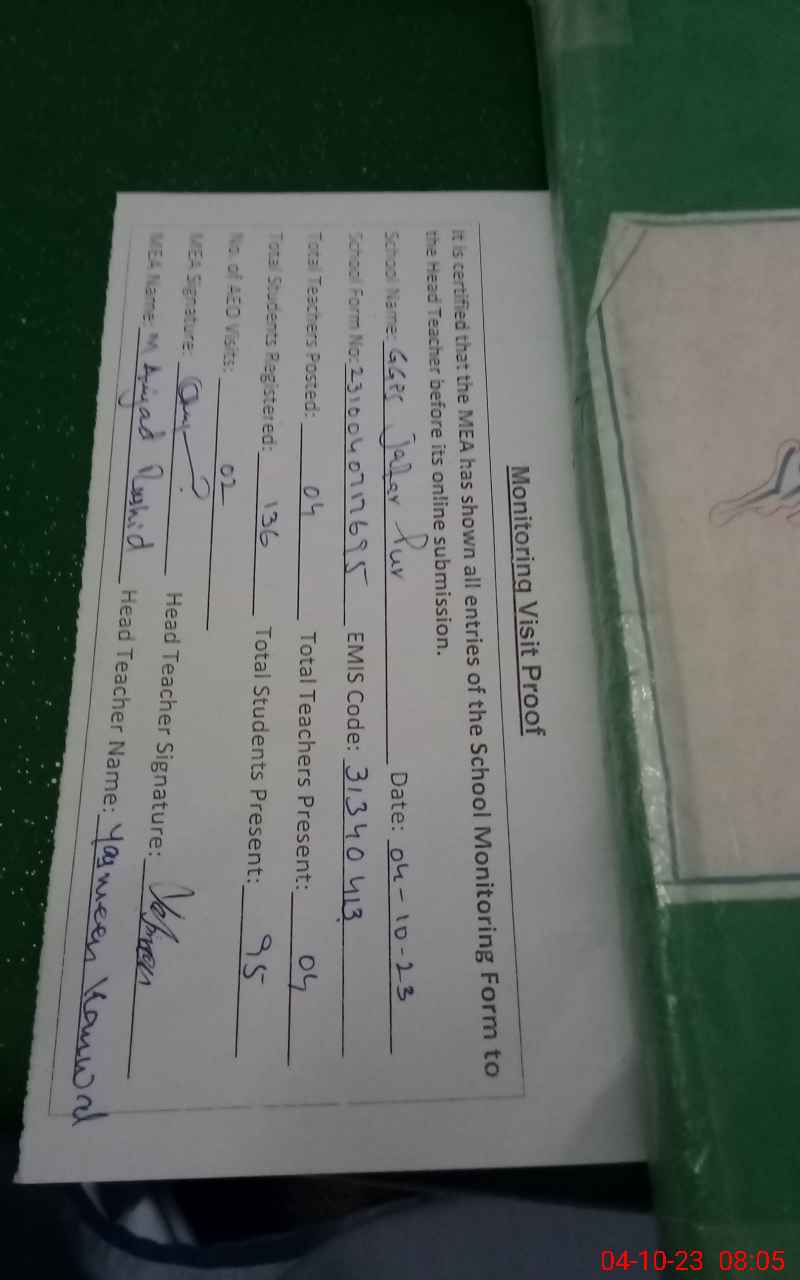 Monitoring Visit Proof
It is certified that the MEA has shown all entries of the School Monitoring Form to
the Head Teacher before its online submission.
School Name: GGPS Jaffar Pur Date: 04-10-23
School Form No: 2310040717695 EMIS Code: 31340413
Total Teachers Posted: 04 Total Teachers Present: 04
Total Students Registered: 136 Total Students Present: 95
No. of AEO Visits: 02
MEA Signature: Head Teacher Signature:
MEA Name: M Amjad Rashid Head Teacher Name: Yasmeen Kanwal
04-10-23 08:05